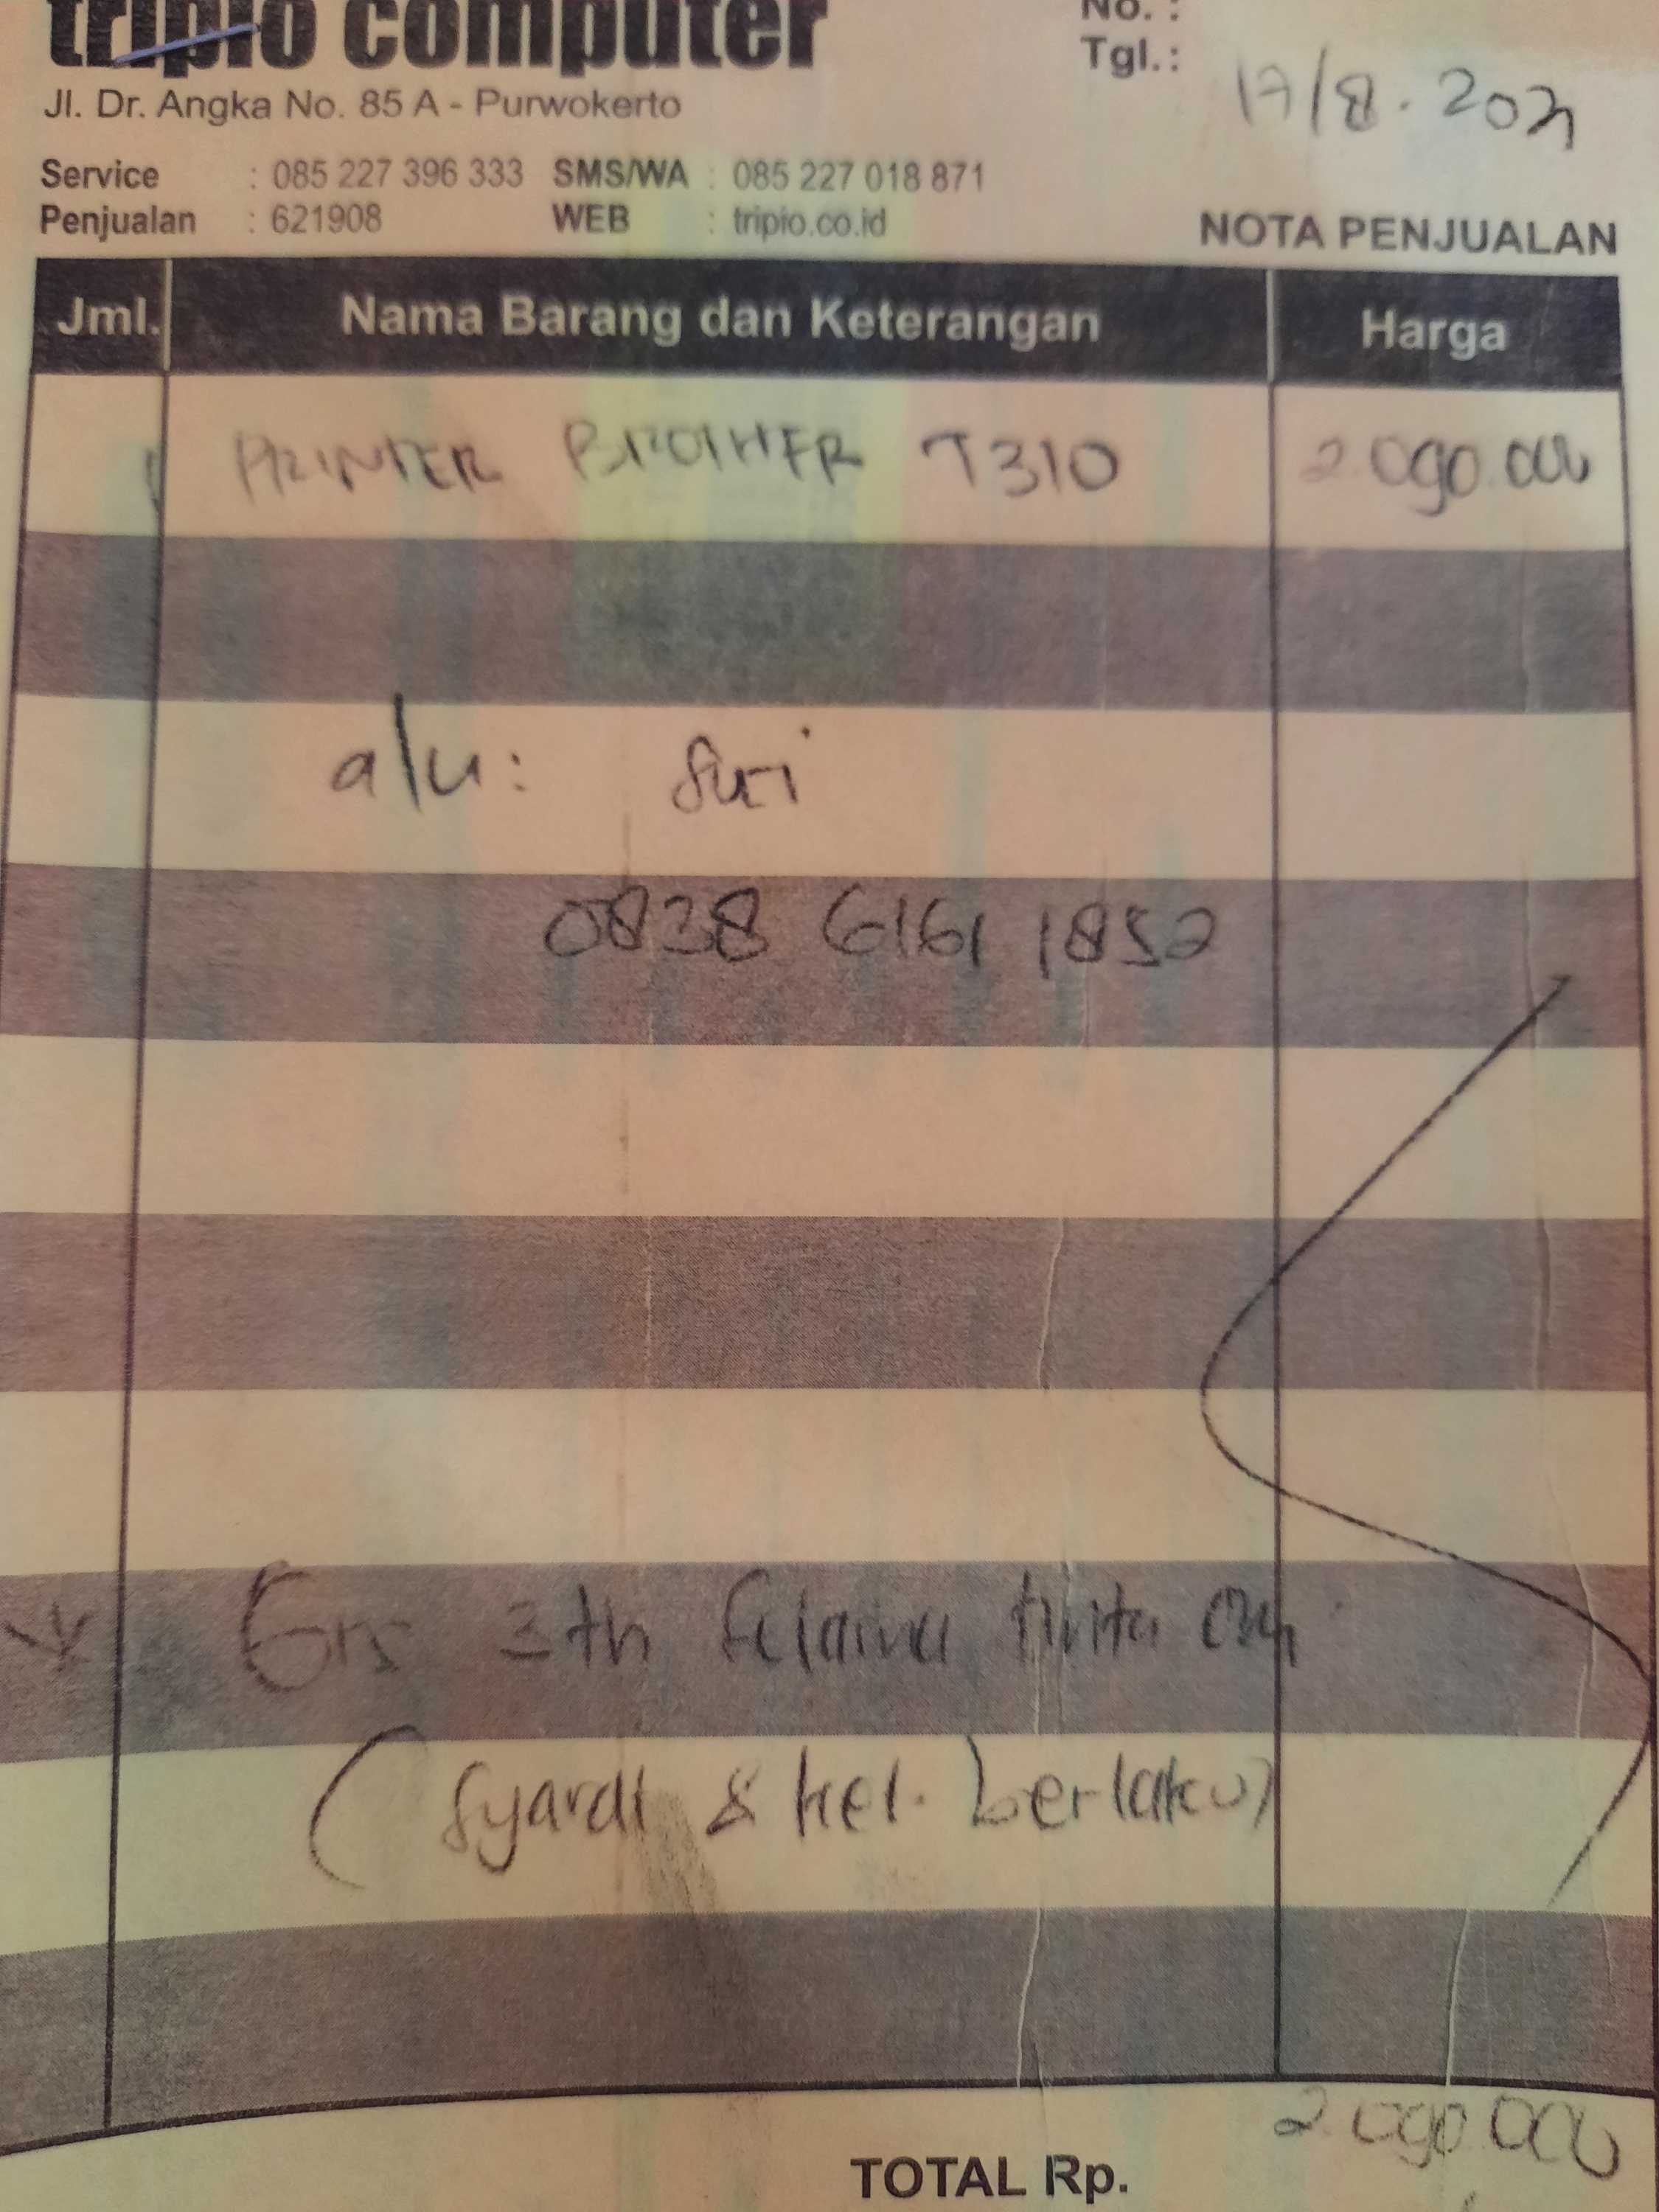 tripio computer
No. :
Tgl. : 17/8. 2021
Jl. Dr. Angka No. 85 A - Purwokerto
Service : 085 227 396 333 SMS/WA : 085 227 018 871
Penjualan : 621908 WEB : tripio.co.id
NOTA PENJUALAN
Jml. Nama Barang dan Keterangan Harga
1 PRINTER BROTHER T310 2.090.000
a/n: Sri
0838 6161 1852
Grs 3 th selama tinta ori
(Syarat & ket. berlaku)
2.090.000
TOTAL Rp.